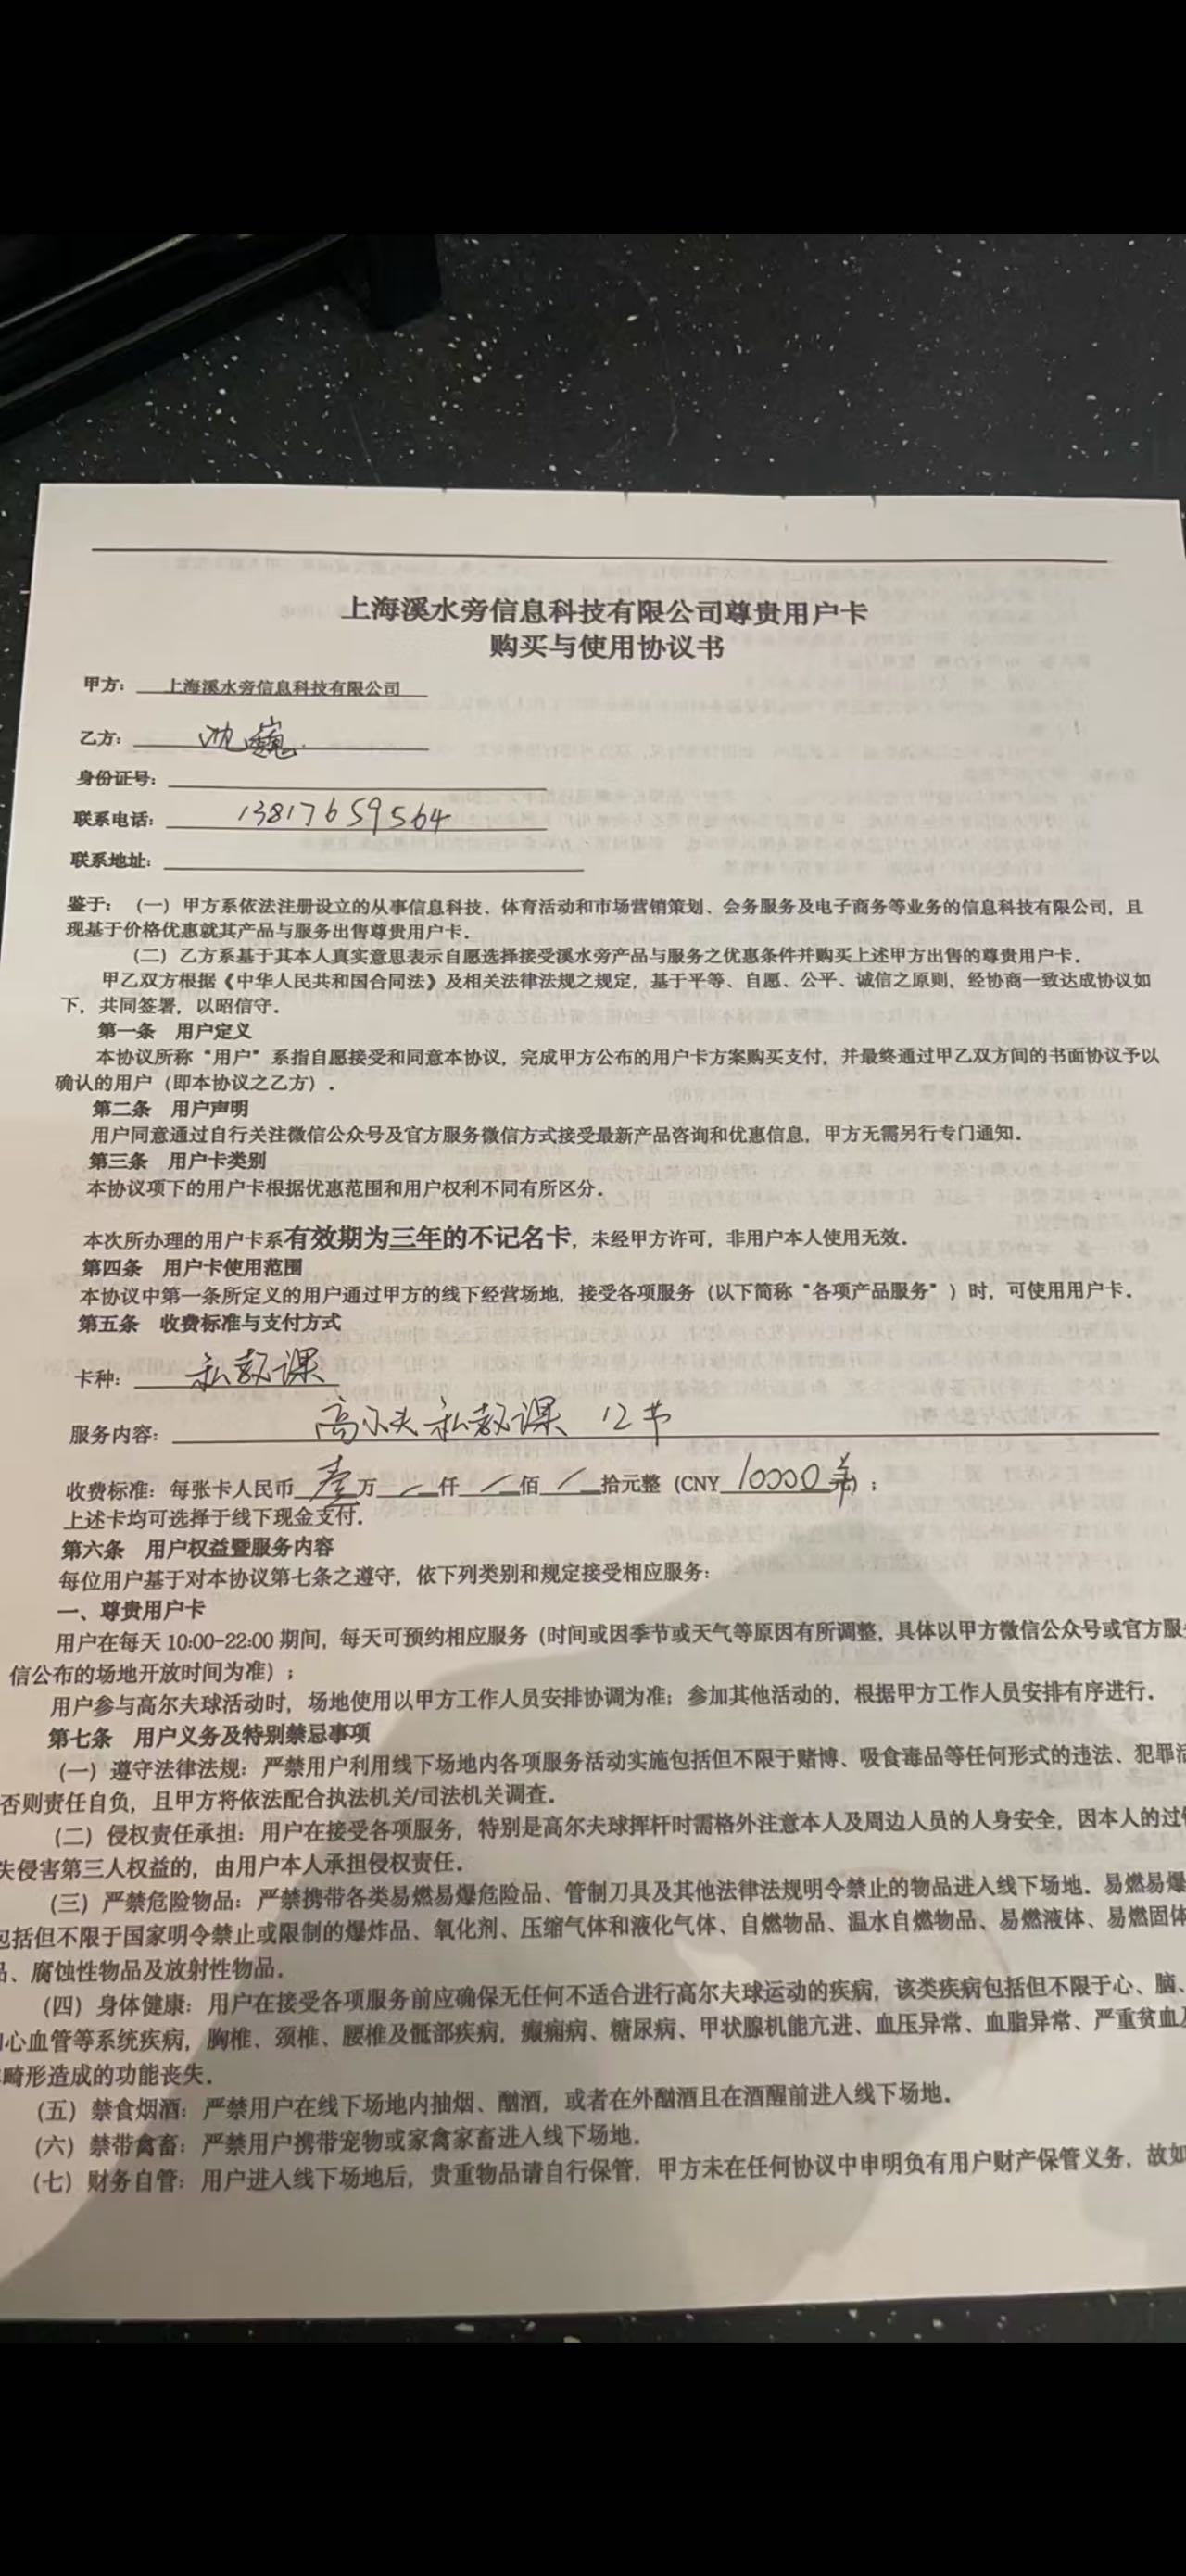 上海溪水旁信息科技有限公司尊贵用户卡
购买与使用协议书
甲方：上海溪水旁信息科技有限公司
乙方：沈巍
身份证号：
联系电话：13817659564
联系地址：
鉴于：（一）甲方系依法注册设立的从事信息科技、体育活动和市场营销策划、会务服务及电子商务等业务的信息科技有限公司，且
现基于价格优惠就其产品与服务出售尊贵用户卡．
（二）乙方系基于其本人真实意思表示自愿选择接受溪水旁产品与服务之优惠条件并购买上述甲方出售的尊贵用户卡．
甲乙双方根据《中华人民共和国合同法》及相关法律法规之规定，基于平等、自愿、公平、诚信之原则，经协商一致达成协议如
下，共同签署，以昭信守．
第一条 用户定义
本协议所称“用户”系指自愿接受和同意本协议，完成甲方公布的用户卡方案购买支付，并最终通过甲乙双方间的书面协议予以
确认的用户（即本协议之乙方）．
第二条 用户声明
用户同意通过自行关注微信公众号及官方服务微信方式接受最新产品咨询和优惠信息，甲方无需另行专门通知．
第三条 用户卡类别
本协议项下的用户卡根据优惠范围和用户权利不同有所区分．
本次所办理的用户卡系有效期为三年的不记名卡，未经甲方许可，非用户本人使用无效．
第四条 用户卡使用范围
本协议中第一条所定义的用户通过甲方的线下经营场地，接受各项服务（以下简称“各项产品服务”）时，可使用用户卡．
第五条 收费标准与支付方式
卡种：私教课
服务内容：高尔夫私教课 12节
收费标准：每张卡人民币壹万／仟／佰／拾元整（CNY 10000元）；
上述卡均可选择于线下现金支付．
第六条 用户权益暨服务内容
每位用户基于对本协议第七条之遵守，依下列类别和规定接受相应服务：
一、尊贵用户卡
用户在每天 10:00-22:00 期间，每天可预约相应服务（时间或因季节或天气等原因有所调整，具体以甲方微信公众号或官方服
信公布的场地开放时间为准）；
用户参与高尔夫球活动时，场地使用以甲方工作人员安排协调为准；参加其他活动的，根据甲方工作人员安排有序进行．
第七条 用户义务及特别禁忌事项
（一）遵守法律法规：严禁用户利用线下场地内各项服务活动实施包括但不限于赌博、吸食毒品等任何形式的违法、犯罪活
否则责任自负，且甲方将依法配合执法机关/司法机关调查．
（二）侵权责任承担：用户在接受各项服务，特别是高尔夫球挥杆时需格外注意本人及周边人员的人身安全，因本人的过错
失侵害第三人权益的，由用户本人承担侵权责任．
（三）严禁危险物品：严禁携带各类易燃易爆危险品、管制刀具及其他法律法规明令禁止的物品进入线下场地．易燃易爆
包括但不限于国家明令禁止或限制的爆炸品、氧化剂、压缩气体和液化气体、自燃物品、温水自燃物品、易燃液体、易燃固体
品、腐蚀性物品及放射性物品．
（四）身体健康：用户在接受各项服务前应确保无任何不适合进行高尔夫球运动的疾病，该类疾病包括但不限于心、脑、
心血管等系统疾病，胸椎、颈椎、腰椎及骶部疾病，癫痫病、糖尿病、甲状腺机能亢进、血压异常、血脂异常、严重贫血及
畸形造成的功能丧失．
（五）禁食烟酒：严禁用户在线下场地内抽烟、酗酒，或者在外酗酒且在酒醒前进入线下场地．
（六）禁带禽畜：严禁用户携带宠物或家禽家畜进入线下场地．
（七）财务自管：用户进入线下场地后，贵重物品请自行保管，甲方未在任何协议中申明负有用户财产保管义务，故如